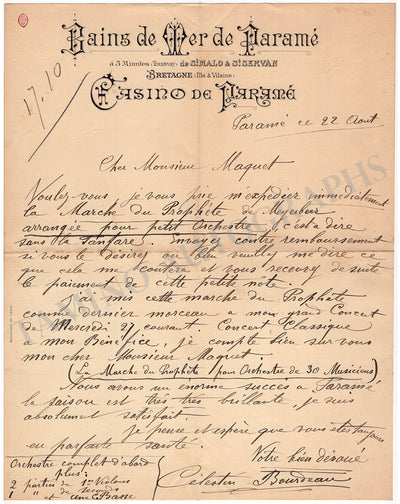 Bains de Mer de Paramé
à 5 Minutes (Tramway) de St MALO & St SERVAN
BRETAGNE (Ille & Vilaine)
CASINO DE PARAMÉ
17.10
Paramé ce 22 Aout
Cher Monsieur Maquet
Voulez-vous je vous prie m'expédier immédiatement
la Marche du Prophète de Meyerbeer
arrangée pour petit Orchestre (c'est à dire
sans la Fanfare). Envoyez contre remboursement
si vous le désirez ou bien veuillez me dire ce
que cela me coutera et vous recevrez de suite
le paiement de cette petite note.
mis cette marche du Prophète
comme dernier morceau a mon grand Concert
de Mercredi 27 courant. Concert Classique
a mon Bénéfice, je compte bien sur vous
mon cher Monsieur Maquet.
(La Marche du Prophète pour Orchestre de 30 Musiciens)
Nous avons un enorme succès a Paramé
la saison est très très brillante, je suis
absolument satisfait.
je pense et espère que vous êtes toujours
en parfaite santé.
Votre bien dévoué
Célestin Bourdeau
Orchestre complet d'abord
plus:
2 parties de 1er Violons
1 " de Seconds
et une Basse
TAMINO AUTOGRAPHS